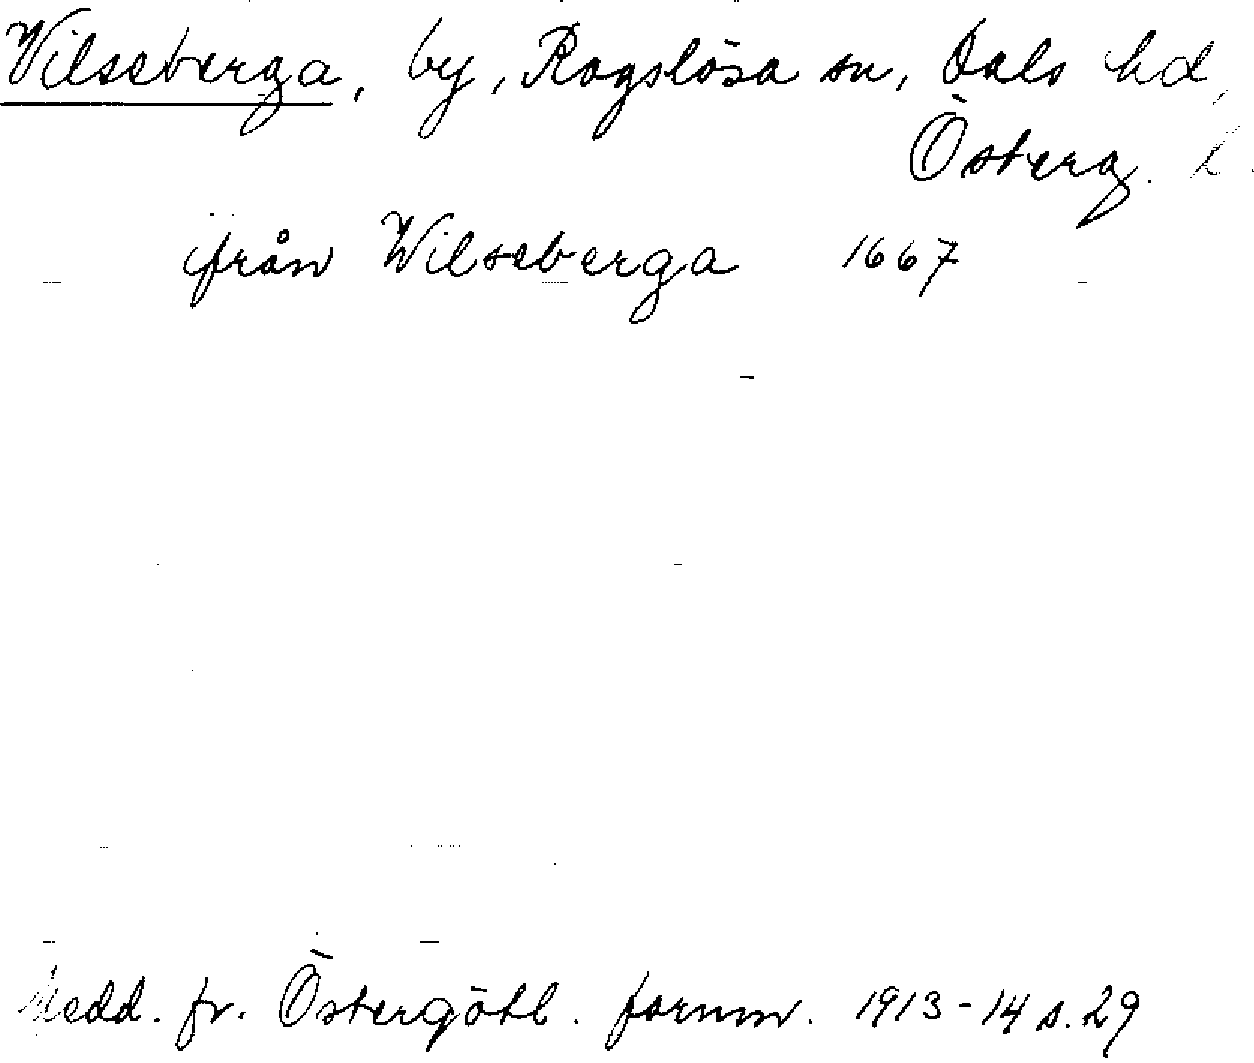 Vilseberga, by, Rogslösa sn, Dals hd,
Österg. l.
från Wilseberga 1667
Medd. fr. Östergötl. fornm. 1913-14 s. 29